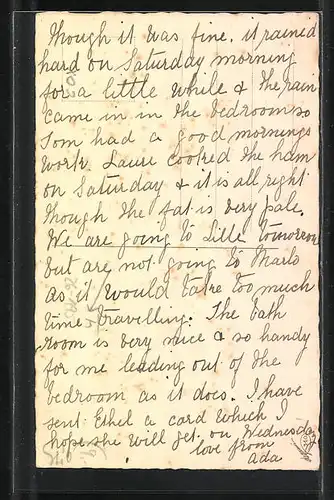 Though it was fine. it rained
hard on Saturday morning
for a little while & the rain
came in in the bedroom so
Tom had a good mornings
work. Laure cooked the ham
on Saturday & it is all right
though the fat is very pale.
We are going to Lille tomorrow
but are not going to Marlo
as it would take too much
time travelling. The bath
room is very nice & so handy
for me leading out of the
bedroom as it does. I have
sent Ethel a card which I
hope she will get on Wednesday
love from
Ada